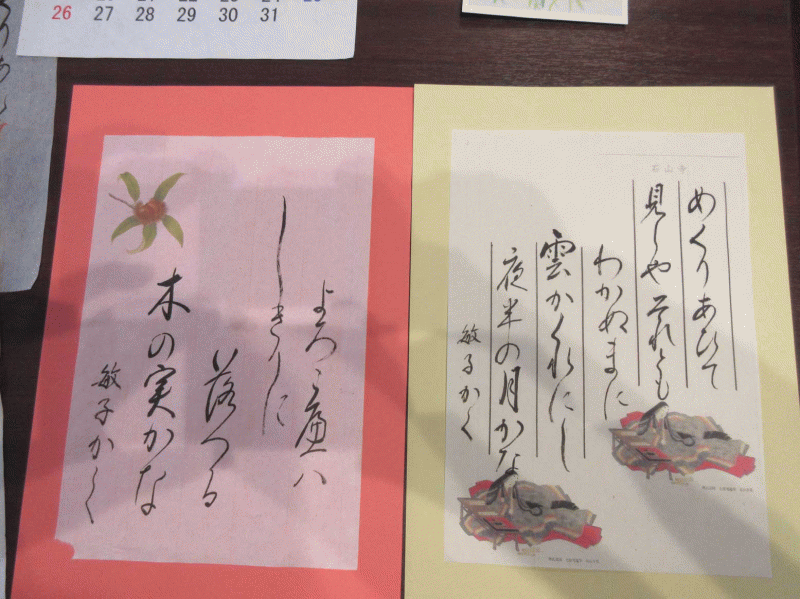 26 27 28 29 30 31
めくりあひて
見しやそれとも
わかぬまに
雲かくれにし
夜半の月かな
敏子かく
よろこ遍ハ
しきりに
落つる
木の実かな
敏子かく